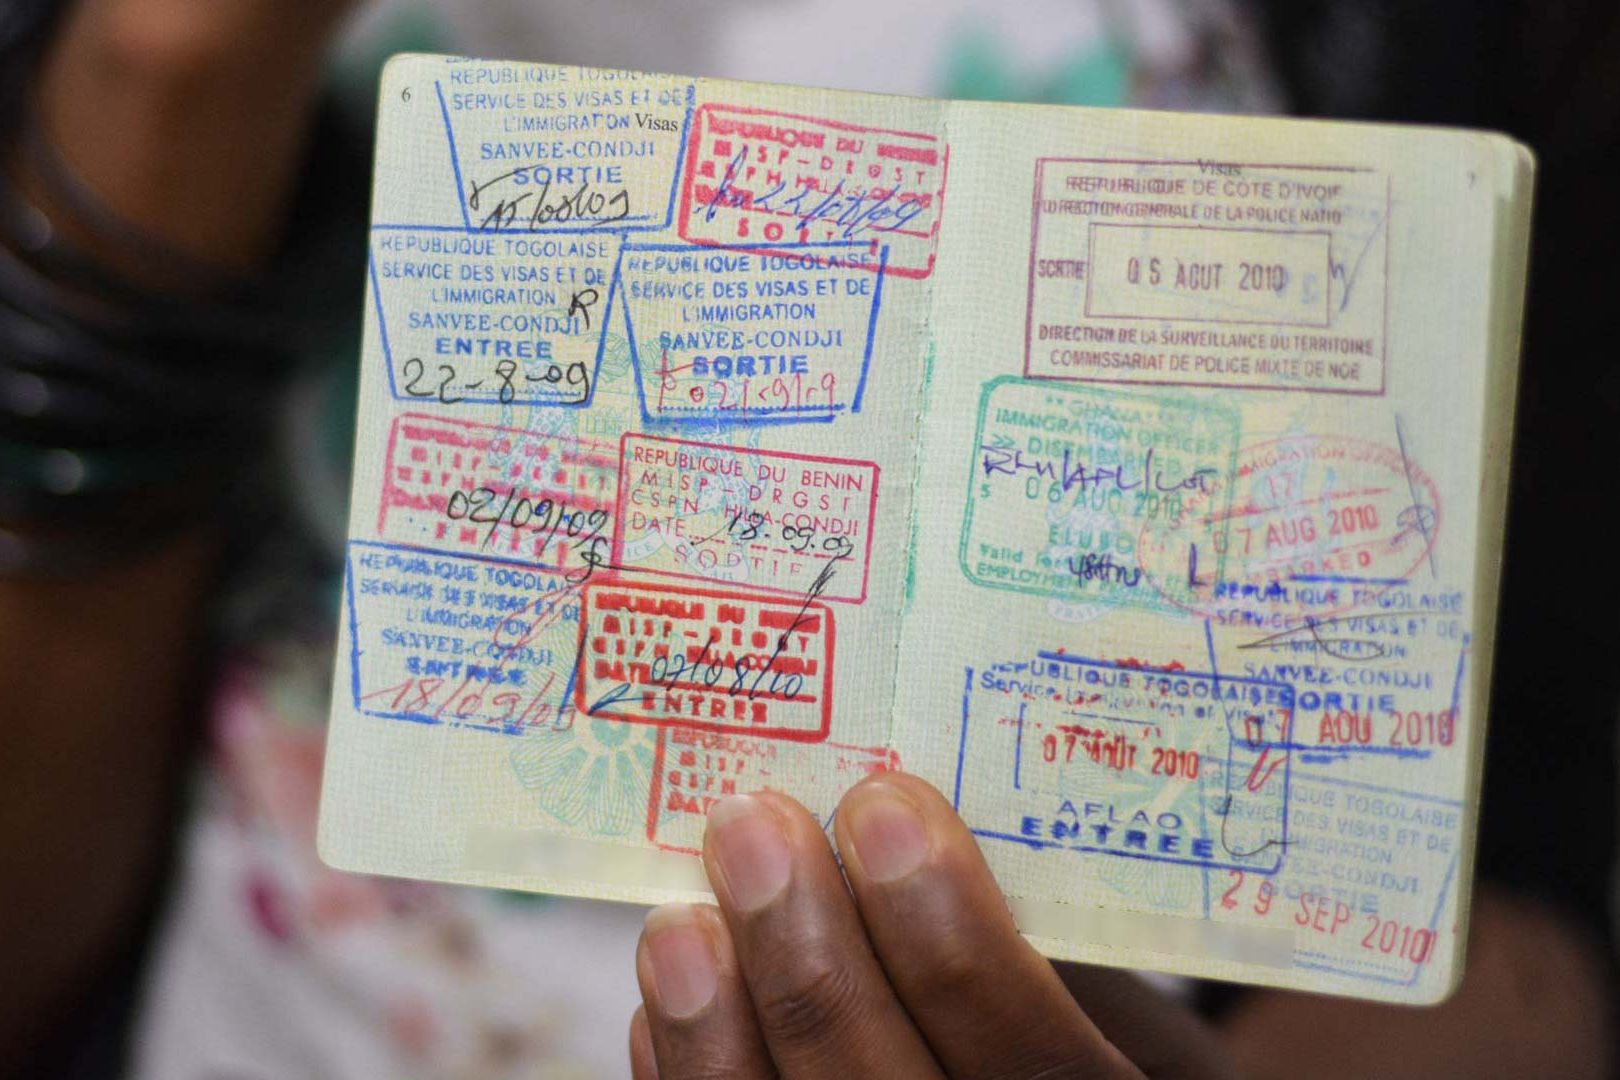 6
REPUBLIQUE TOGOLAISE
SERVICE DES VISAS ET DE
L'IMMIGRATION
Visas
SANVEE-CONDJI
SORTIE
REPUBLIQUE DU BENIN
MISP-DRGST
22/08/09
SORTIE
REPUBLIQUE TOGOLAISE
SERVICE DES VISAS ET DE
L'IMMIGRATION
SANVEE-CONDJI
ENTREE
22-8-09
REPUBLIQUE TOGOLAISE
SERVICE DES VISAS ET DE
L'IMMIGRATION
SANVEE-CONDJI
SORTIE
02/09/09
REPUBLIQUE DU BENIN
MISP - DRGST
CSPN HILLA-CONDJI
DATE
18.09.09
SORTIE
REPUBLIQUE TOGOLAISE
SERVICE DES VISAS ET DE
L'IMMIGRATION
SANVEE-CONDJI
ENTREE
18/09/09
REPUBLIQUE DU BENIN
MISP-DRGST
CSPN HILLA-CONDJI
DATE
07/08/10
ENTREE
REPUBLIQUE
MISP -
CSPN
DATE
7
Visas
REPUBLIQUE DE COTE D'IVOIR
DIRECTION GENERALE DE LA POLICE NATIO
SORTIE
05 AOUT 2010
DIRECTION DE LA SURVEILLANCE DU TERRITOIRE
COMMISSARIAT DE POLICE MIXTE DE NOE
** GHANA **
IMMIGRATION OFFICER
>> DISEMBARKED
06 AUG 2010
ELUBO
Valid for
EMPLOYMENT
IMMIGRATION OFFICER
17
07 AUG 2010
REPUBLIQUE TOGOLAISE
SERVICE DES VISAS ET DE
L'IMMIGRATION
SANVEE-CONDJI
SORTIE
07 AOU 2010
REPUBLIQUE TOGOLAISE
Service
07 AOUT 2010
AFLAO
ENTREE
REPUBLIQUE TOGOLAISE
SERVICE DES VISAS ET DE
L'IMMIGRATION
SANVEE-CONDJI
SORTIE
29 SEP 2010